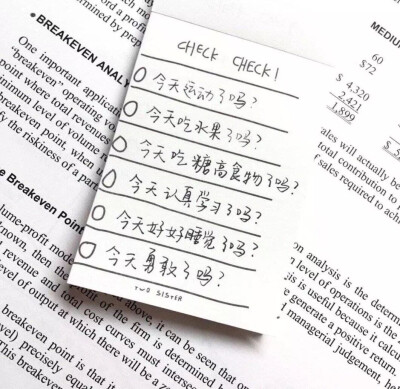 CHECK CHECK!
今天运动了吗?
今天吃水果了吗?
今天吃糖高食物了吗?
今天认真学习了吗?
今天好好睡觉了吗?
今天勇敢了吗?
TWO SISTER
ord a profi
rmined by prep
• BREAKEVEN ANALY
One important applica
"breakeven" operating vo
point where total revenues
minimum level of volume re
breakeven point, when u
fy the riskiness of a par
he Breakeven Point
lume-profit mode
nown, then the
profit of the firm is determined by
revenue and total cost curves must intersect
level of output at which there will be a z
breakeven point is that it
vel) precisely equa
This breakeven
60
$72
$ 4,320
2,421
1,899
ales will actually be
total contribution to
f sales required to achi
on analysis is the determ
n level of operations is the
is is useful because it calcul
generate a positive return.
managerial judgement